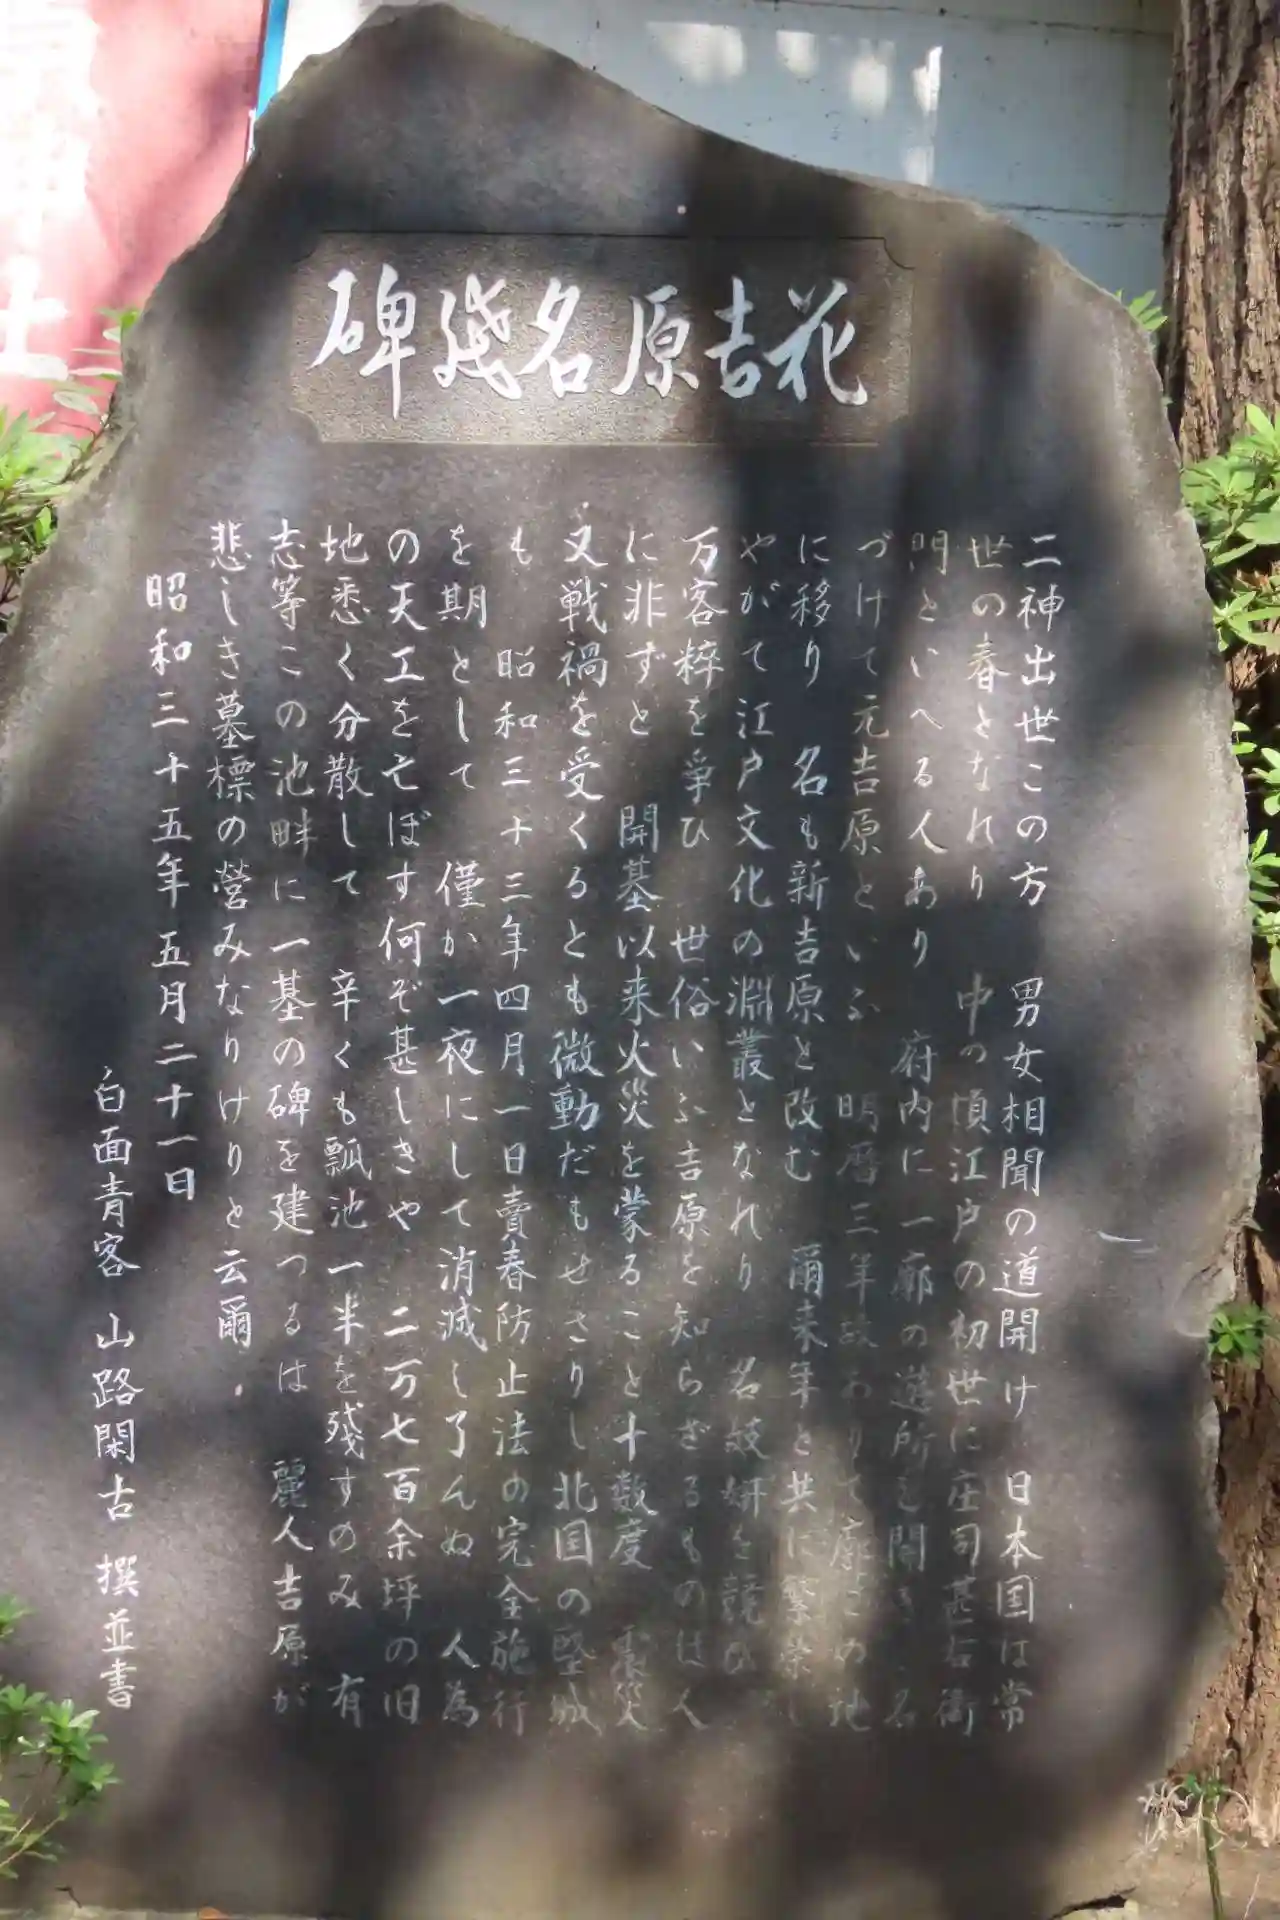 花吉原名残碑
二神出世この方　男女相聞の道開け　日本国は常
世の春となれり　中の頃江戸の初世に庄司甚右衛
門といへる人あり　府内に一廓の遊所を開き　名
づけて元吉原といふ　明暦三年故ありて廓この地
に移り　名も新吉原と改む　爾来年と共に繁栄し
やがて江戸文化の淵叢となれり　名妓妍を競ひ
万客粋を争ひ　世俗いふ吉原を知らざるものは人
に非ずと　開基以来火災を蒙ること十数度　震災
又戦禍を受くるとも微動だもせさりし北国の堅城
も　昭和三十三年四月一日賣春防止法の完全施行
を期として　僅か一夜にして消滅し了んぬ　人為
の天工を亡ぼす何ぞ甚しきや　二万七百余坪の旧
地悉く分散して　辛くも瓢池一半を残すのみ　有
志等この池畔に一基の碑を建つるは　麗人吉原が
悲しき墓標の営みなりけりと云爾.
昭和三十五年五月二十一日
白面青客　山路閑古　撰並書